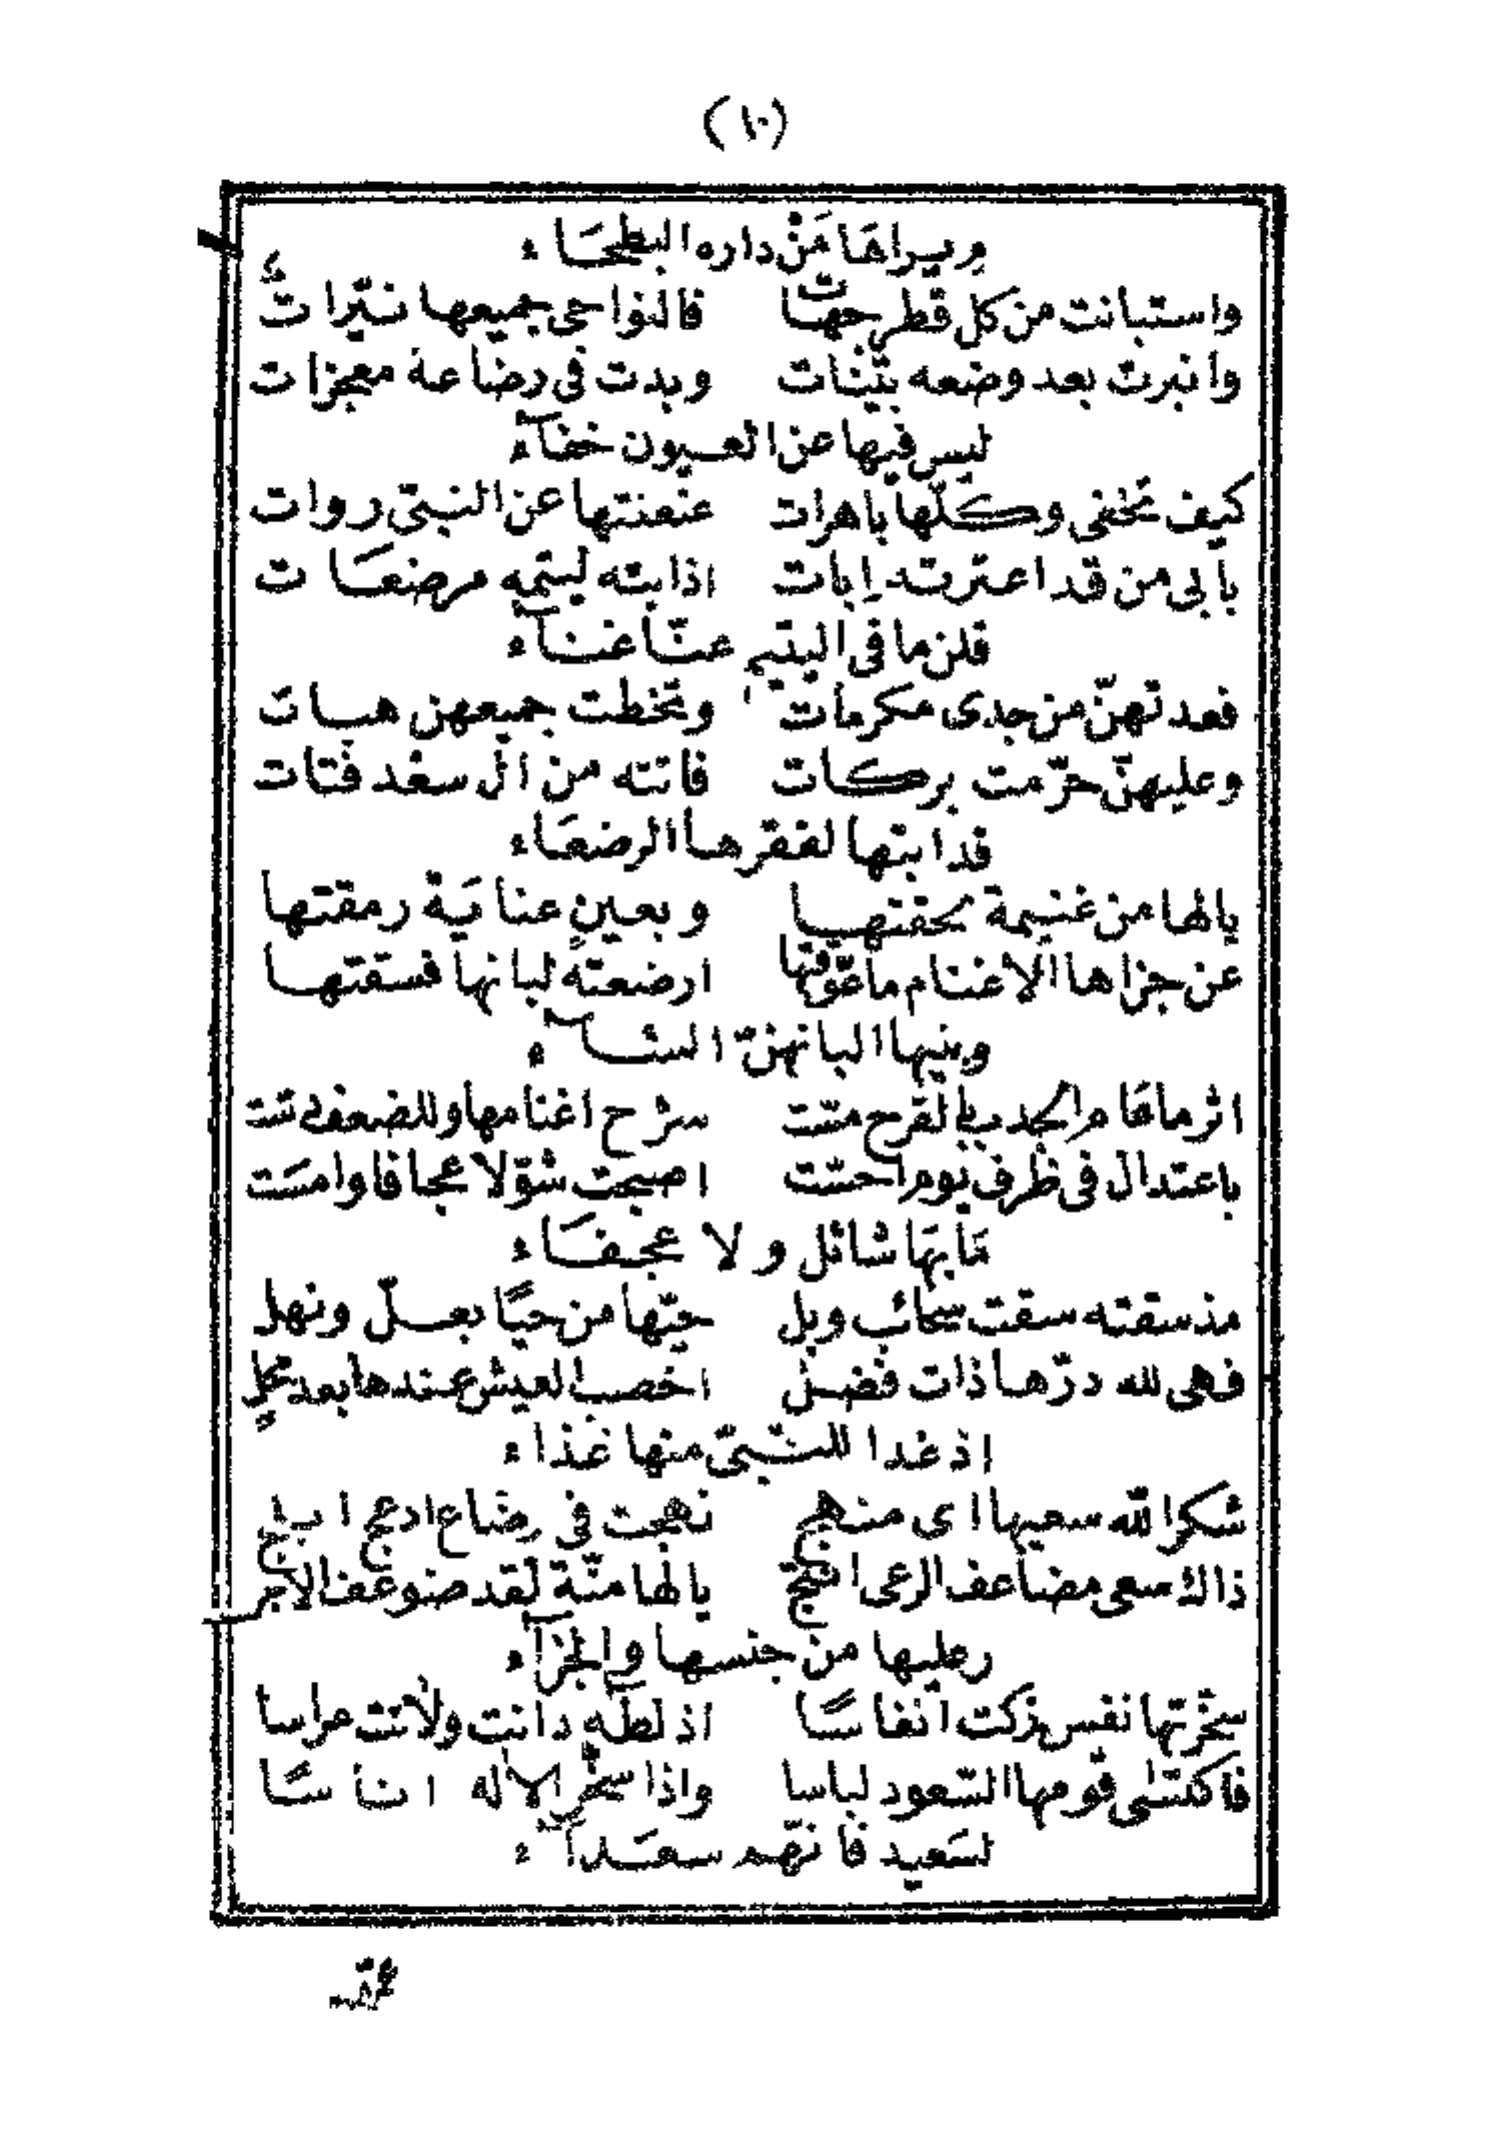 (١٠)
ويراها من داره البطحاء
واستبانت من كل قطر جهات فالنواحي جميعها نيّرات
وانبرت بعد وضعه بيّنات وبدت في رضاعة معجزات
ليس فيها عن العيون خفآء
كيف تخفى وكلّها باهرات عنعنتها عن النبيّ روات
بأبي من قد اعترته إبات اذ ابته ليتمه مرضعات
قلن ما في اليتيم عنّا غنآء
فعدتهنّ من جدى مكرمات وتخطت جميعهن هبات
وعليهنّ حرّمت بركات فاتته من آل سعد فتات
قد ابتها لفقرها الرضعاء
يالها من غنيمة بحقتها وبعين عناية رمقتها
عن جزاها الاغنام ما عوّقتها ارضعته لبانها فسقتها
وبنيها البانهنّ الشآء
اثر ماقام الجدب بالقرح متت سرح اغنامها وللضعف
باعتدال في ظرف يوم احسّت اصبحت شوّلا عجافا وامست
مابها شائل ولا عجفاء
مذ سقته سقت سحائب وبل حيّها من حيًا بعلّ ونهل
فهى لله درّها ذات فضل اخصب العيش عندها بعد محل
اذ غدا للنّبيّ منها غذاء
شكر الله سعيها اى منهج نهجت في رضاع ادعج ابلج
ذاك سعى مضاعف الرعى انتج يالها منّة لقد ضوعف الاجر
عليها من جنسها والجزآء
سخّرتها نفس زكت انفاسًا اذ لطه دانت ولانت مراسا
فاكتسى قومها السّعود لباسا واذا سخّر الاله اناسًا
لسعيد فانّهم سعدآء